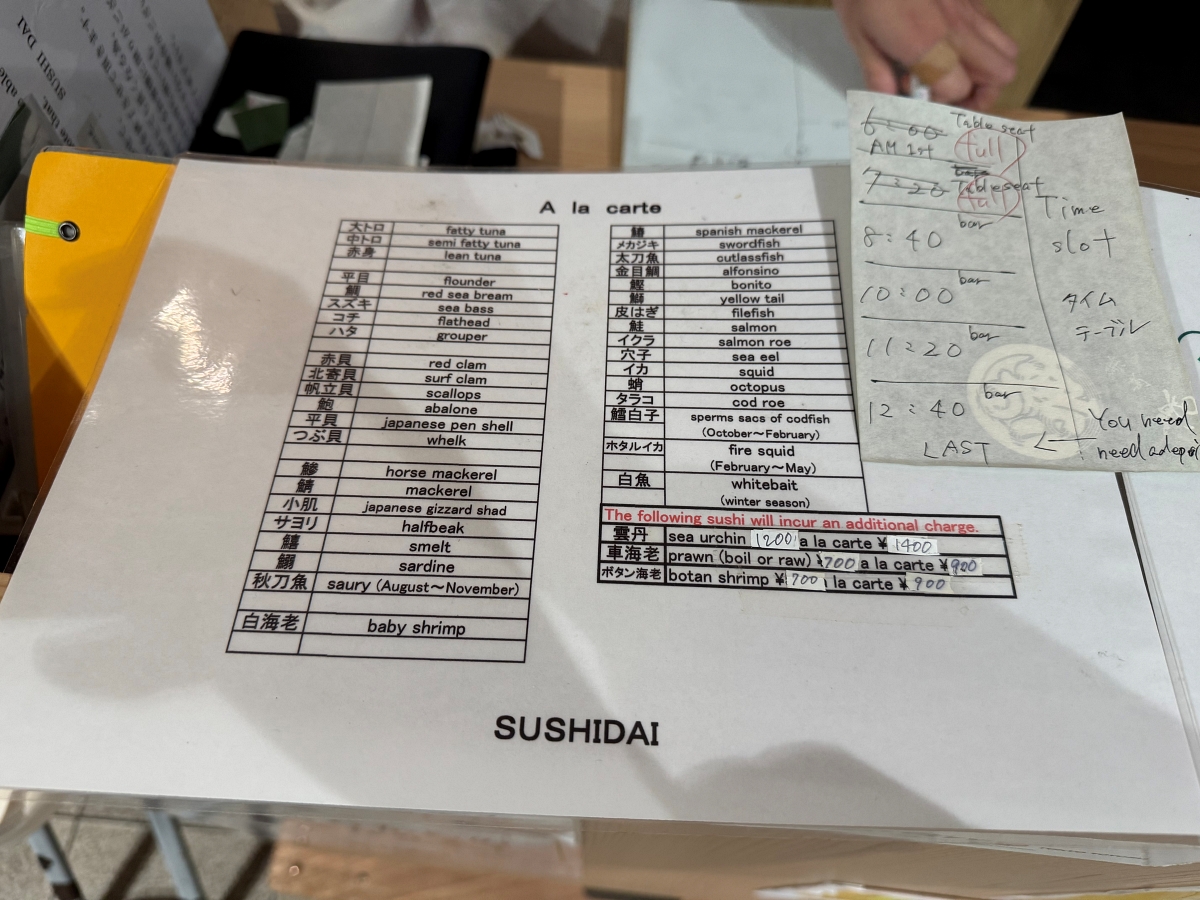 SUSHI DAI
A la carte
大トロ fatty tuna
中トロ semi fatty tuna
赤身 lean tuna
平目 flounder
鯛 red sea bream
スズキ sea bass
コチ flathead
ハタ grouper
赤貝 red clam
北寄貝 surf clam
帆立貝 scallops
鮑 abalone
平貝 japanese pen shell
つぶ貝 whelk
鯵 horse mackerel
鯖 mackerel
小肌 japanese gizzard shad
サヨリ halfbeak
鱚 smelt
鰯 sardine
秋刀魚 saury (August～November)
白海老 baby shrimp
鰆 spanish mackerel
メカジキ swordfish
太刀魚 cutlassfish
金目鯛 alfonsino
鰹 bonito
鰤 yellow tail
皮はぎ filefish
鮭 salmon
イクラ salmon roe
穴子 sea eel
イカ squid
蛸 octopus
タラコ cod roe
鱈白子 sperms sacs of codfish
(October～February)
ホタルイカ fire squid
(February～May)
白魚 whitebait
(winter season)
The following sushi will incur an additional charge.
雲丹 sea urchin 1200 a la carte ¥ 1400
車海老 prawn (boil or raw) ¥700 a la carte ¥900
ボタン海老 botan shrimp ¥700 a la carte ¥ 900
SUSHIDAI
6:00 Table seat
AM 1st full
7:20 Table seat
full
bar
8:40
bar
10:00
bar
11:20
bar
12:40
LAST
Time
slot
タイム
テーブル
You need
need a